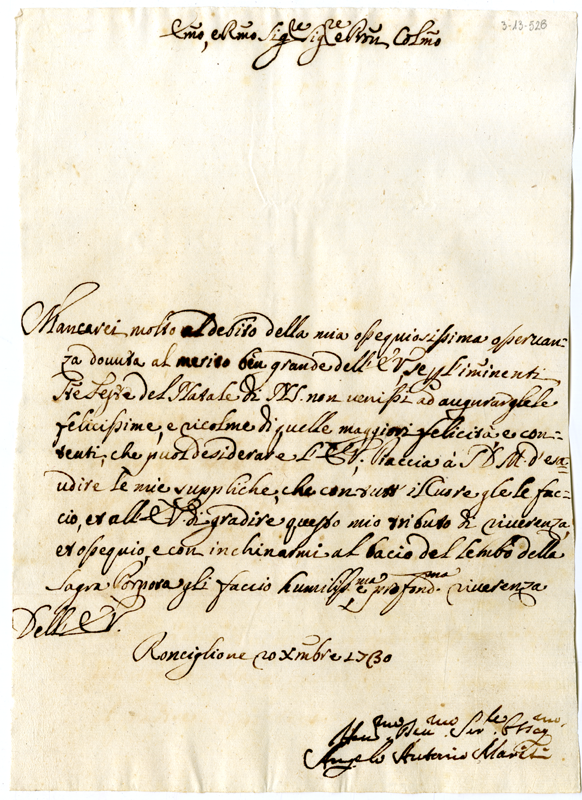 3-13-526
Emo, e Rmo Sigre Sigre e Pron Colmo
Mancarei molto al debito della mia ossequiosissima osservan-
za dovuta al merito ben grande dell'E.V. se nell'imminenti
Ste Feste del Natale di N.S. non venissi ad augurarglele
felicissime, e ricolme di quelle maggiori felicità e con-
tenti, che puol desiderare l'E.V., Piaccia à S.D.M. d'esau-
dire le mie suppliche, che con tutt'il Cuore gle le fac-
cio, et all'E.V. di gradire questo mio tributo di riverenza,
et ossequio, e con inchinarmi al bacio del lembo della
Sagra Porpora gli faccio humilissma e profondma riverenza
Dell'E.V.
Ronciglione 20 Xmbre 1730
Hummo Devmo Serre Osseqmo
Angelo Antonio